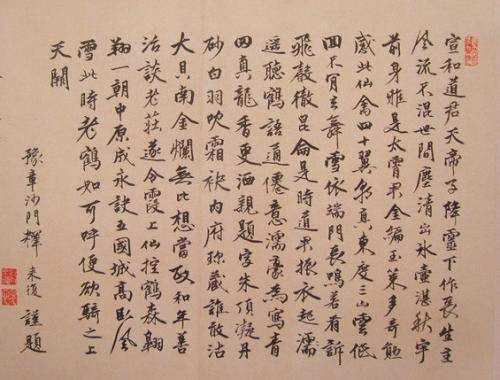 宣和道君天帝子降靈下作長生主
風流不混世間塵清出冰壺湛秋宇
前身雅是太霄君金編玉策多奇勳
感此仙禽四十翼真東度三山雲低
回不肯去舞雪依端門長鳴若有訴
飛聲徹崑崙是時道君振衣起濡
遙聽鶴語道僊意濡豪為寫青
田真龍香更洒親題字朱頂凝丹
砂白羽吹霜袂內府珎藏誰敢沽
大貝南金爛無比想當政和年善
治談老莊遂令霞上仙控鶴森翱
翔一朝中原成永訣五國城高臥風
雪此時老鶴如可呼便欲騎之上
天闕
豫章沙門釋来復謹題